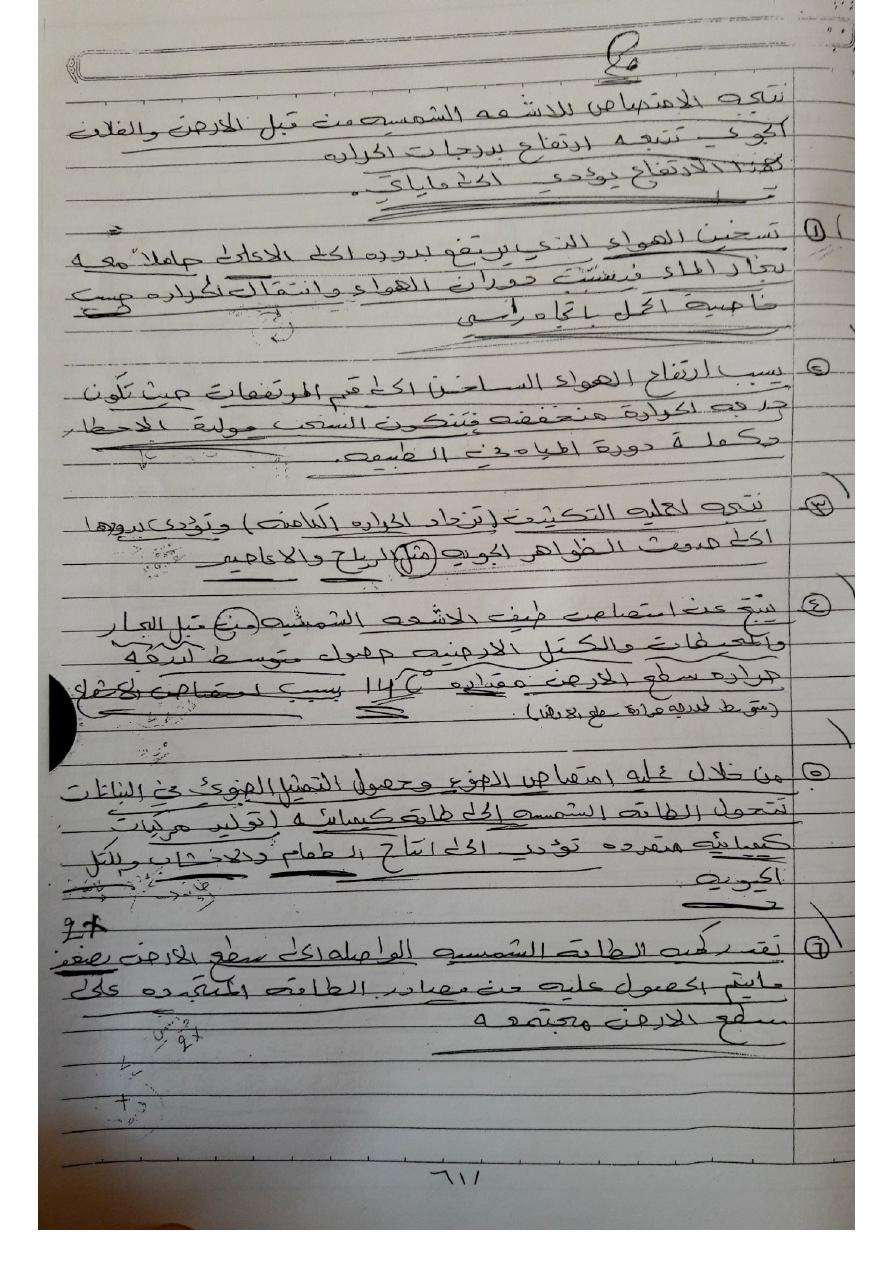 نتيجه الامتصاص للاشعه الشمسيه من قبل الارض والغلاف
الجوي تتبعه ارتفاع بدرجات الحراره
هذا الارتفاع يؤدي الى ماياتي.
① تسخين الهواء الذي يرتفع بدوره الى الاعلى حاملاً معه
بخار الماء فيسبب دوران الهواء وانتقال الحراره حسب
خاصية الحمل باتجاه رأسي
② يسبب ارتفاع الهواء الساخن الى قمم المرتفعات حيث تكون
درجه الحرارة منخفضه فتتكون السحب مولدة الامطار
دورة المياه في الطبيعه.
③ نتيجه لعمليه التكثيف (تزداد الحراره الكامنه) وتؤدي بدورها
الى حدوث الظواهر الجويه مثل الرياح والاعاصير
④ ينتج عن امتصاص طيف الاشعه الشمسيه من قبل البحار
والمحيطات والكتل الارضيه حصول متوسط لدرجه
حراره سطع الارض مقداره 14C° بسبب امتصاص الاشعاع
(متوسط لدرجه حرارة سطع الارض).
⑤ من خلال عمليه امتصاص الضوء وحصول التمثيل الضوئي في النباتات
تتحول الطاقه الشمسيه الى طاقه كيميائيه (توليد مركبات
كيميائيه متفرده تؤدي الى انتاج الطعام والاخشاب والكتل
الحيويه
2x
⑥ تقدر كميه الطاقه الشمسيه الواصله الى سطع الارض بضعف
مايتم الحصول عليه من مصادر الطاقه المتجدده على
سطع الارض مجتمعه
٦١١